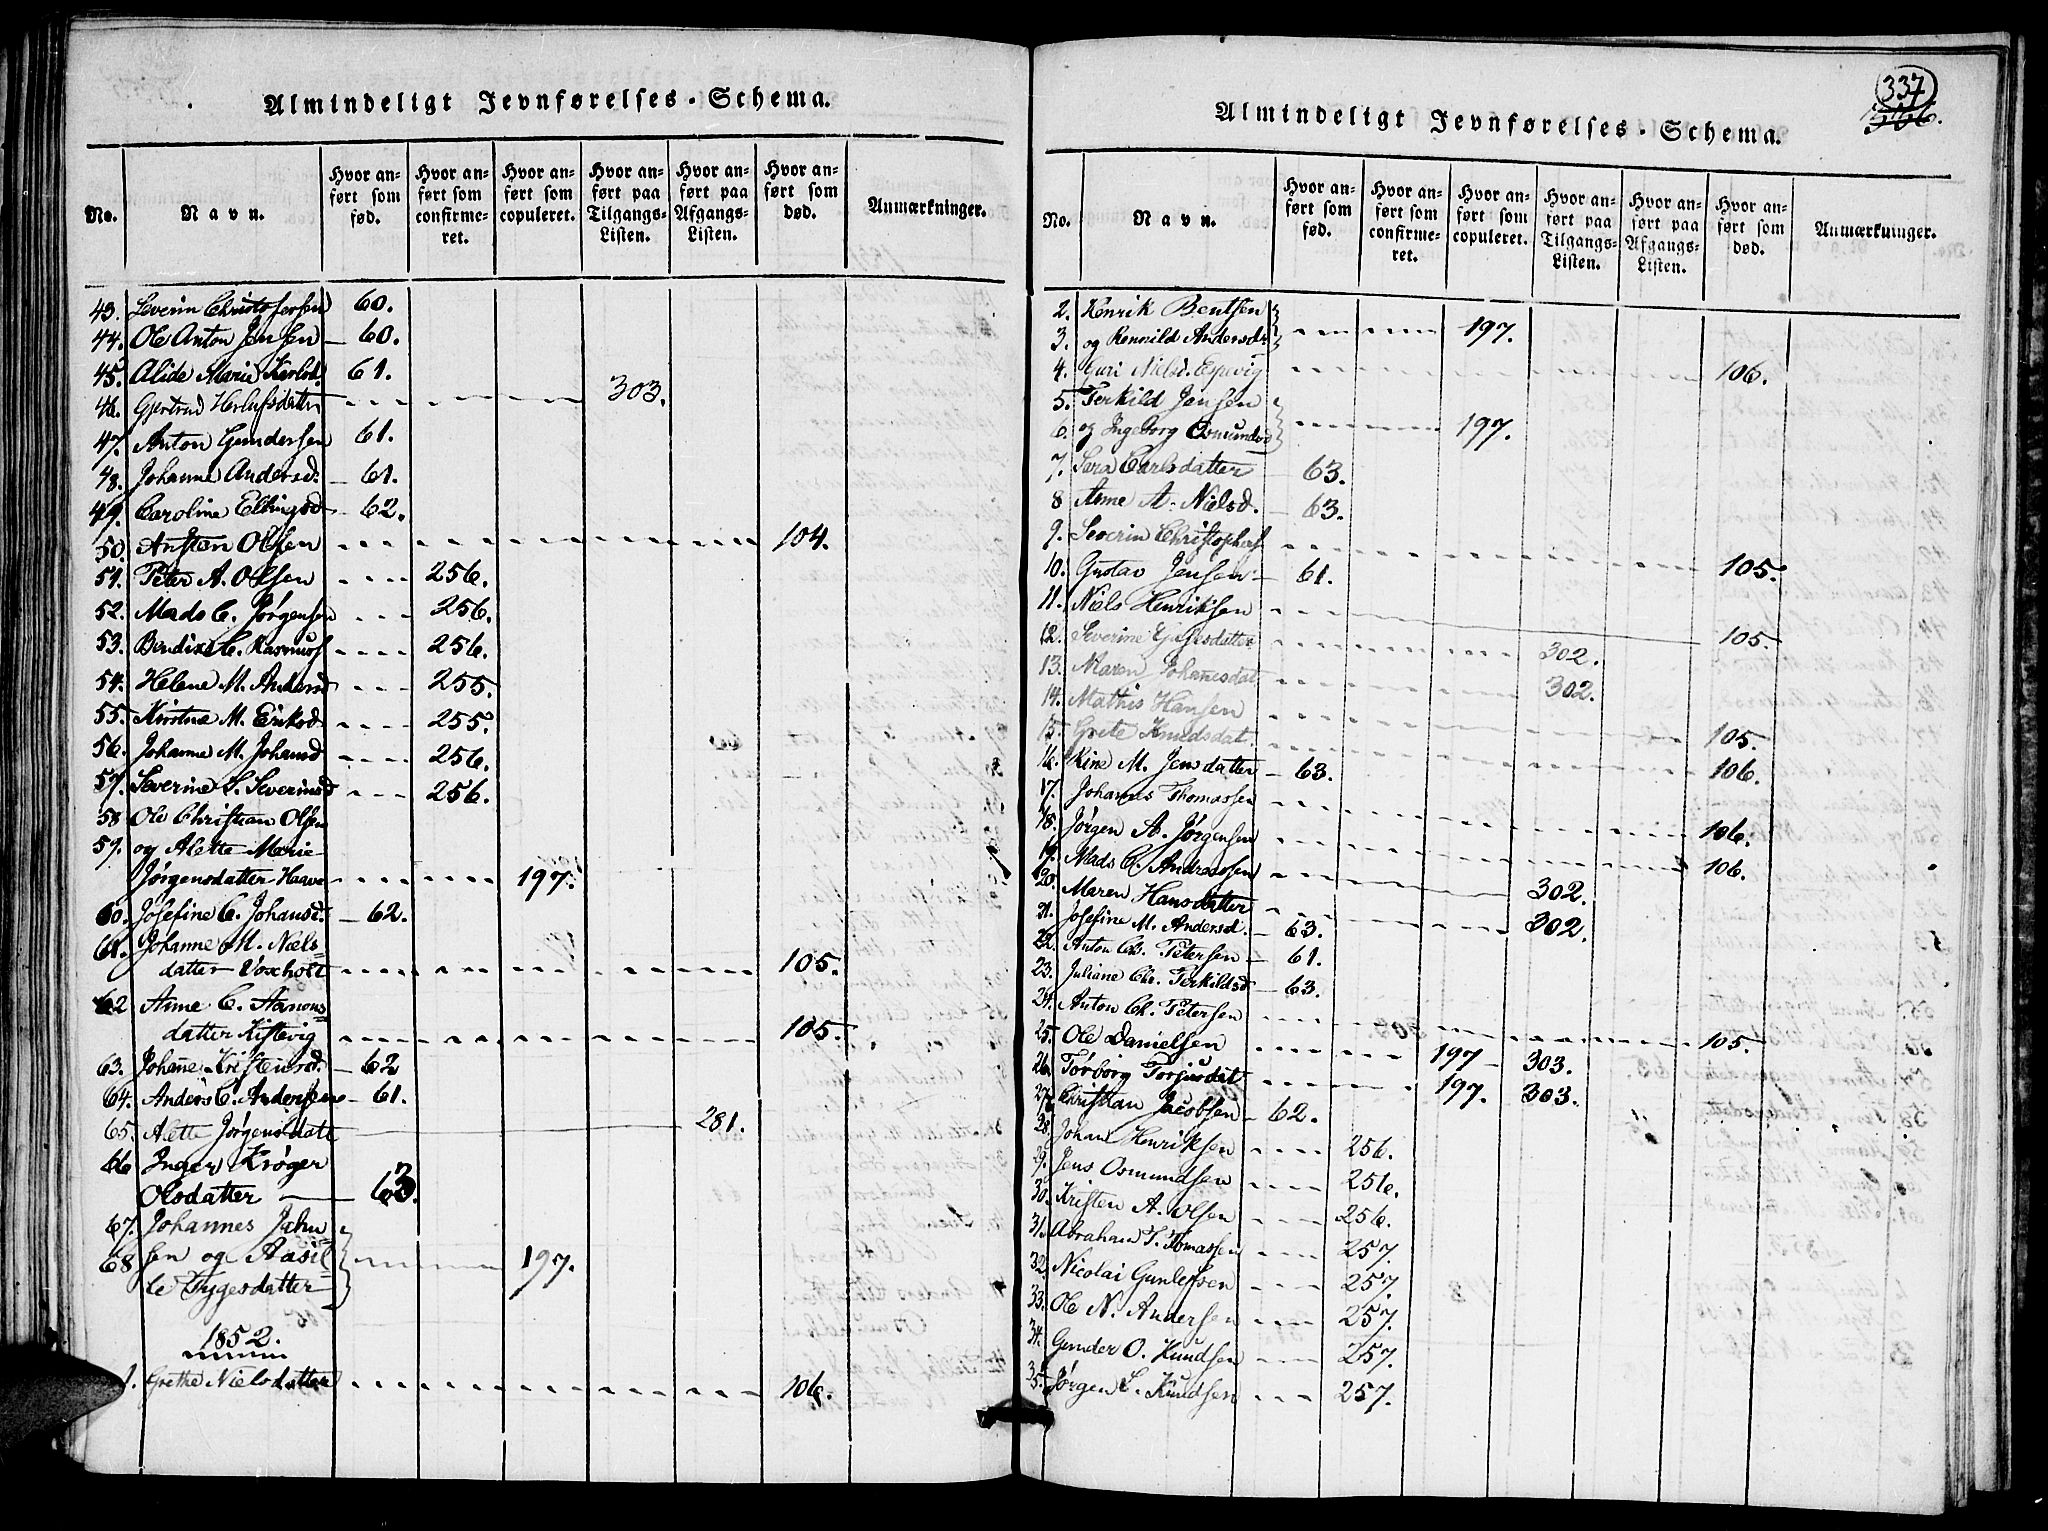 Almindeligt Jevnførelses-Schema.
No. Navn. Hvor anført som fød. Hvor anført som confirmeret. Hvor anført som copuleret. Hvor anført paa Tilgangs-Listen. Hvor anført paa Afgangs-Listen. Hvor anført som død. Anmærkninger.
43. Severin Christophersen 60.
44. Ole Anton Jensen 60.
45. Alide Marie 61.
46. Gjertrud 303.
47. Anton Gundersen 61.
48. Johanne Andersd. 61.
49. Caroline Ellingsd 62.
50. Austen Olsen 104.
51. Peter A. Olsen 256.
52. Mads C. Jørgensen 256.
53. Bendix C. Rasmuss 256.
54. Helene M. Andersd 255.
55. Kirstine M. Eriksd 255.
56. Johanne M. Johansd 256.
57. Severine S. Severinsd 256.
58 Ole Christian Olsen
59. og Alette Marie
Jørgensdatter Haave 197.
60. Josefine C. Johansd. 62.
61. Johanne M. Niels
datter Voxholt 105.
62 Anne C. Aanons
datter Kistevig 105.
63. Johane Kristensd. 62
64. Anders C. Andersen 61.
65. Alette Jørgensdatt 281.
66 Inger Krøger
Olsdatter 63.
67. Johannes Jahn
68 sen og Aasil
le Tygesdatter 197.
1852.
1. Grethe Nielsdatter 106.
Almindeligt Jevnførelses-Schema.
337
No. Navn. Hvor anført som fød. Hvor anført som confirmeret. Hvor anført som copuleret. Hvor anført paa Tilgangs-Listen. Hvor anført paa Afgangs-Listen. Hvor anført som død. Anmærkninger.
2. Henrik Bentsen
3. og Rennild Andersdr 197.
4. Guri Nielsd. Espevig 106.
5. Terkild Jensen
6. og Ingeborg Osmundsd 197.
7. Sara Carlsdatter 63.
8 Anne A. Nielsd. 63.
9. Severin Christophers 105.
10. Gustav Jensen 61.
11. Niels Henriksen 105.
12. Severine 302.
13. Maren Johanesdat 302.
14. Mathis Hansen 105.
15. Grete Knudsdat. 106.
16. Kine M. Jensdatter 63.
17. Johannes Thomassen 106.
18. Jørgen A. Jørgensen 106.
19. Mads C. Andreassen 302.
20. Maren Hansdatter 302.
21. Josefine M. Andersd. 63.
22. Anton Ch. Petersen 61.
23. Juliane Chr. Terkildsd 63.
24. Anton Ch. Petersen 105.
25. Ole Danielsen 197 303.
26. Torborg Torjusdat 197. 303.
27. Christian Jacobsen 62.
28. Johan Henriksen 256.
29. Jens Osmundsen 256.
30. Kristen A. Olsen 256.
31. Abraham T. Tomassen 257.
32. Nicolai Gunlefsen 257.
33. Ole N. Andersen 257.
34. Gunder O. Knudsen 257.
35. Jørgen S. Knudsen 257.